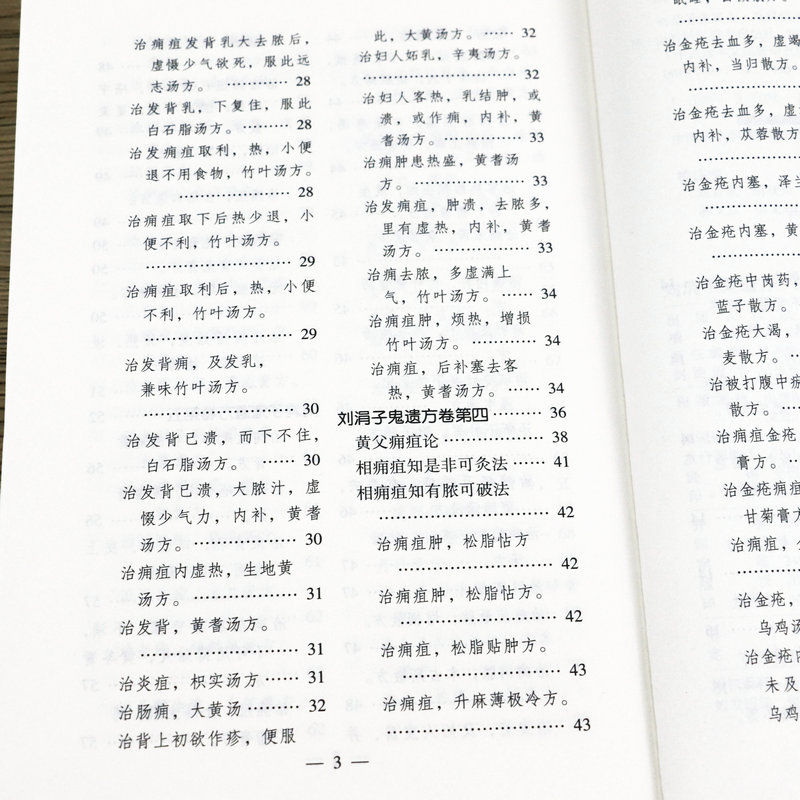 治痈疽发背乳大去脓后，
虚慑少气欲死，服此远
志汤方。 …… 28
治发背乳，下复住，服此
白石脂汤方。 …… 28
治发痈疽取利，热，小便
退不用食物，竹叶汤方。
…… 28
治痈疽取下后热少退，小
便不利，竹叶汤方。
…… 29
治痈疽取利后，热，小便
不利，竹叶汤方。
…… 29
治发背痈，及发乳，
兼味竹叶汤方。
…… 30
治发背已溃，而下不住，
白石脂汤方。 …… 30
治发背已溃，大脓汁，虚
惙少气力，内补，黄耆
汤方。 …… 30
治痈疽内虚热，生地黄
汤方。 …… 31
治发背，黄耆汤方。
…… 31
治炎疽，枳实汤方 …… 31
治肠痈，大黄汤 …… 32
治背上初欲作疹，便服
此，大黄汤方。 …… 32
治妇人妬乳，辛夷汤方。
…… 32
治妇人客热，乳结肿，或
溃，或作痈，内补，黄
耆汤方。 …… 33
治痈肿患热盛，黄耆汤
方。 …… 33
治发痈疽，肿溃，去脓多，
里有虚热，内补，黄耆
汤方。 …… 33
治痈去脓，多虚满上
气，竹叶汤方。 …… 34
治痈疽肿，烦热，增损
竹叶汤方。 …… 34
治痈疽，后补塞去客
热，黄耆汤方。 …… 34
刘涓子鬼遗方卷第四 …… 36
黄父痈疽论 …… 38
相痈疽知是非可灸法 …… 41
相痈疽知有脓可破法
…… 42
治痈疽肿，松脂怗方
…… 42
治痈疽肿，松脂怗方。
…… 42
治痈疽，松脂贴肿方。
…… 43
治痈疽，升麻薄极冷方。
…… 43
— 3 —
治金疮去血多，虚竭
内补，当归散方。
治金疮去血多，虚
内补，苁蓉散方
治金疮内塞，泽兰
治金疮内塞，黄
治金疮中茵药，
蓝子散方。
治金疮大渴，
麦散方。
治被打腹中瘀
散方。
治痈疽金疮
膏方。
治金疮痈疽
甘菊膏方
治痈疽，金
治金疮，
乌鸡汤
治金疮内
未及
乌鸡